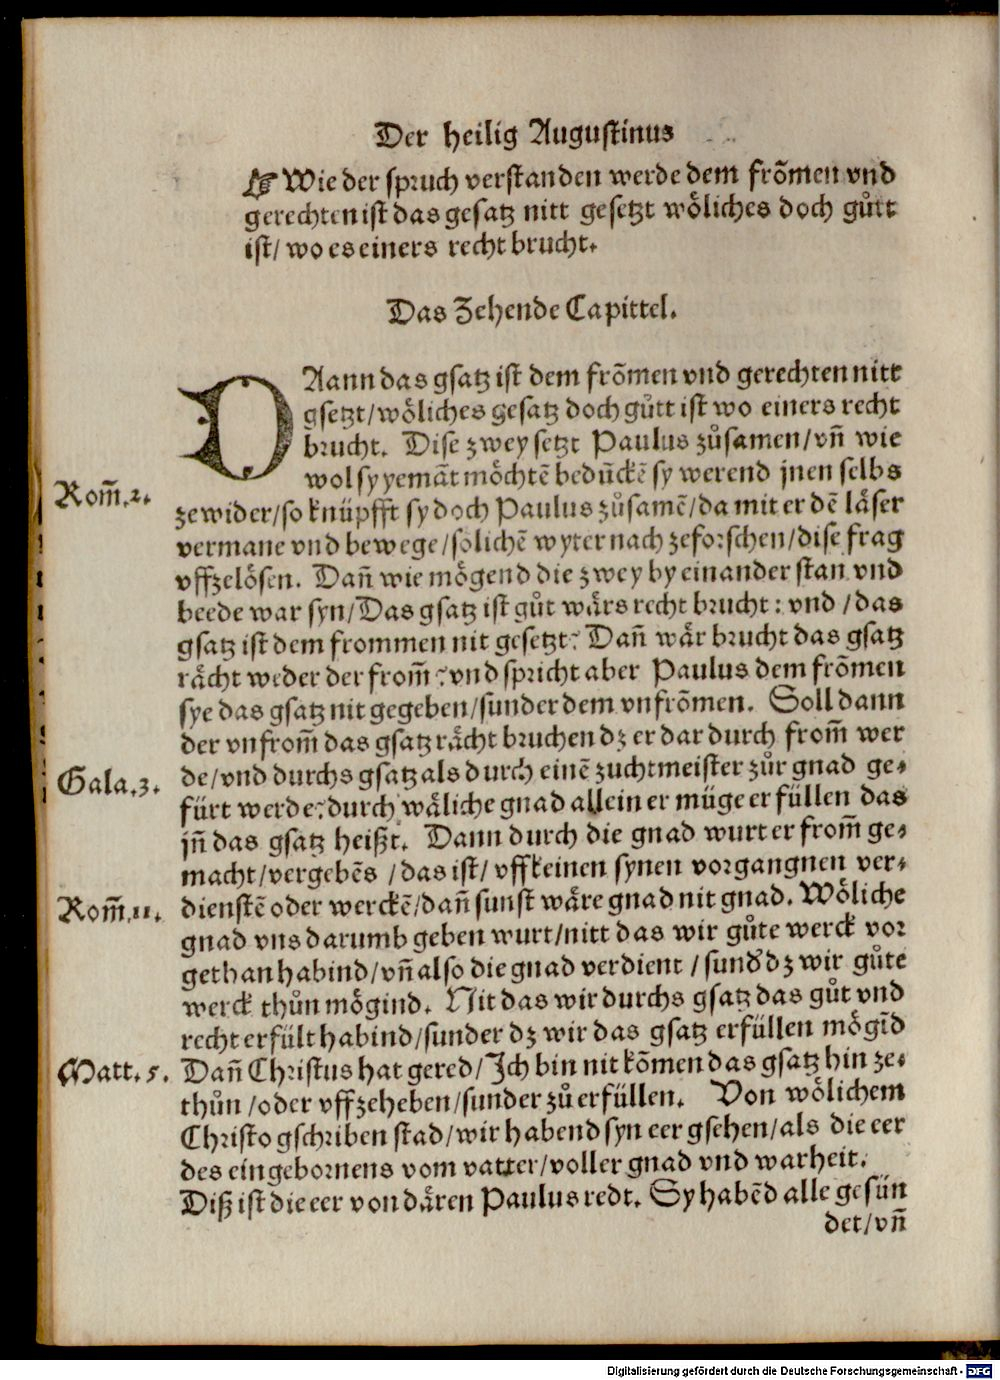 Der heilig Augustinus
☞ Wie der spruch verstanden werde dem frõmen vnd
gerechten ist das gesatz nitt gesetzt wöliches doch gůtt
ist/ wo es einers recht brucht.
Das Zehende Capittel.
DAann das gsatz ist dem frõmen vnd gerechten nitt
gsetzt/wöliches gesatz doch gůtt ist wo einers recht
brucht. Dise zwey setzt Paulus zůsamen/vñ wie
wol sy yemãt möchtẽ bedũckẽ sy werend jnen selbs
Rom̃.2.
zewider/so knüpfft sy doch Paulus zůsamẽ/da mit er dẽ läser
vermane vnd bewege/solichẽ wyter nach zeforschen/dise frag
vffzelösen. Dañ wie mögend die zwey by einander stan vnd
beede war syn/Das gsatz ist gůt wärs recht brucht: vnd /das
gsatz ist dem frommen nit gesetzt? Dañ wär brucht das gsatz
rächt weder der from̃? vnd spricht aber Paulus dem frõmen
sye das gsatz nit gegeben/sunder dem vnfrõmen. Soll dann
der vnfrom̃ das gsatz rächt bruchen dz er dar durch from̃ wer
Gala.3.
de/vnd durchs gsatz als durch einẽ zuchtmeister zůr gnad ge⸗
fürt werde? durch wäliche gnad allein er müge erfüllen das
jñ das gsatz heißt. Dann durch die gnad wurt er from̃ ge⸗
macht/vergebẽs /das ist/ vff keinen synen vorgangnen ver⸗
Rom̃.11.
dienstẽ oder werckẽ/dañ sunst wäre gnad nit gnad. Wöliche
gnad vns darumb geben wurt/nitt das wir gůte werck vor
gethan habind/vñ also die gnad verdient /sund' dz wir gůte
werck thůn mögind. Nit das wir durchs gsatz das gůt vnd
recht erfült habind/sunder dz wir das gsatz erfüllen mögĩd
Matt. 5.
Dañ Christus hat gered/Ich bin nit kõmen das gsatz hin ze⸗
thůn /oder vffzeheben/sunder zů erfüllen. Von wölichem
Christo gschriben stad/wir habend syn eer gsehen/als die eer
des eingebornens vom vatter/voller gnad vnd warheit.
Diß ist die eer von dären Paulus redt. Sy habẽd alle gesün
det/vñ
Digitalisierung gefördert durch die Deutsche Forschungsgemeinschaft - DFG